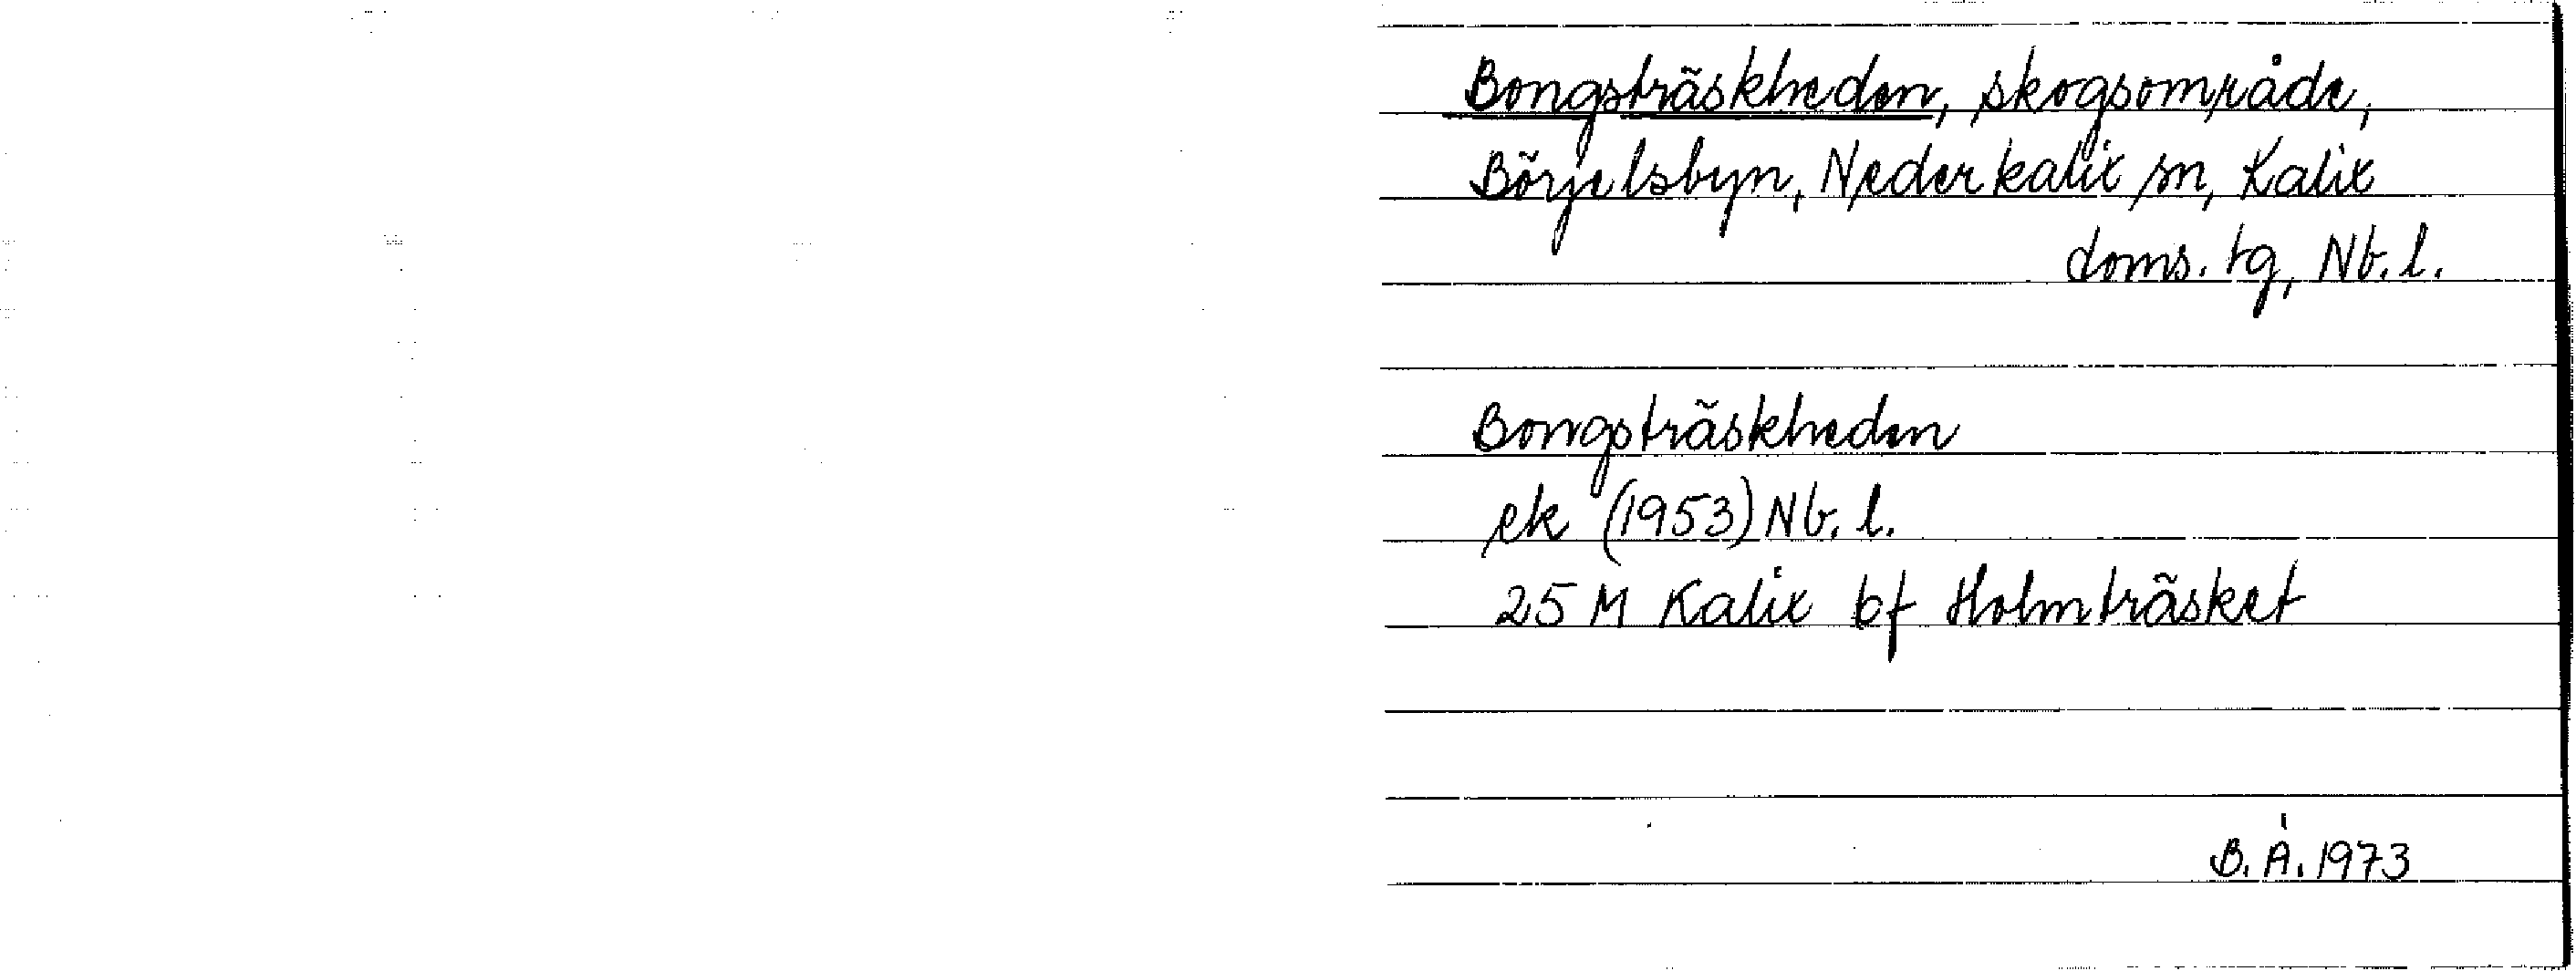 Bongsträskheden, skogsområde,
Börjelsbyn, Nederkalix sn, Kalix
doms. tg, Nb. l.
Bongsträskheden
ek (1953) Nb. l.
25 M Kalix bf Holmträsket
B. Å. 1973